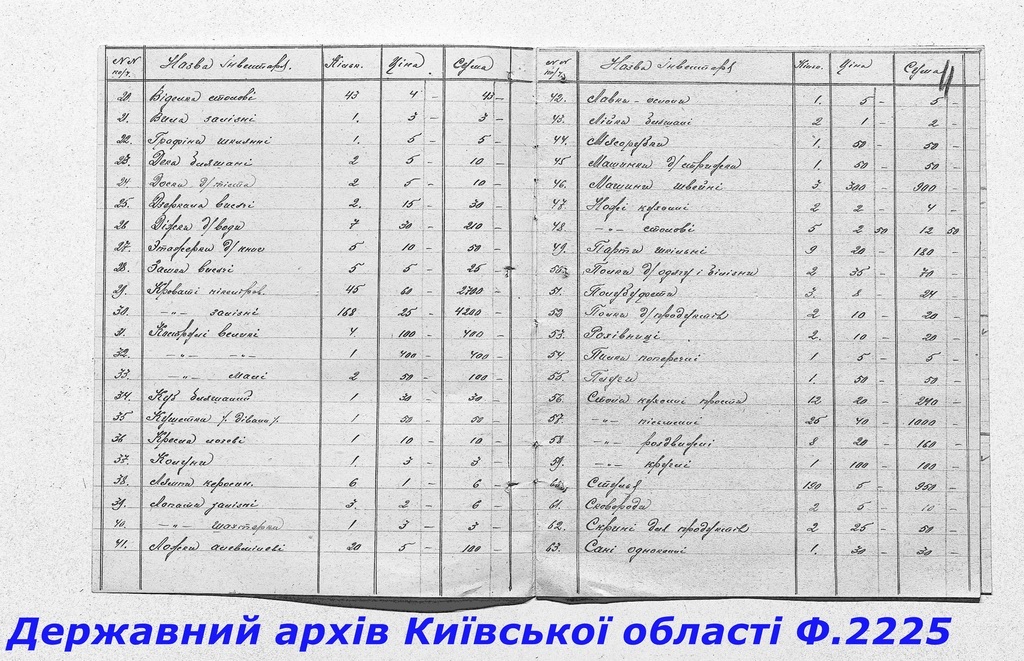 № № по/ч. Назва інвентаря. Кільк. Ціна Сума
20. столові 43 43 –
21. Вила залізні 1. 3 – 3 –
22. Графіна шклянні 1. 5 – 5 –
23. Дека бляшані 2 5 – 10 –
24. Доска д/тіста 2 5 – 10 –
25. Дзеркала висячі 2. 15 – 30 –
26. д/води 7 30 – 210 –
27. Этажерки д/книг 5 10 – 50 –
28. Замки висячі 5 5 – 25 –
29. Кроваті 45 60 – 2700 –
30. –"– залізні 168 25 – 4200 –
31. Кострулі великі 4 100 – 400 –
32. –"– –"– 1 400 – 400 –
33. –"– малі 2 50 – 100 –
34. Куб бляшаний 1 30 – 30 –
35 Кушетки /дівани/. 1 50 – 50 –
36. Кресла 1 10 – 10 –
37. Колуни 1. 3 – 3 –
38. Лямпи керосин. 6 1 – 6 –
39. Лопати залізні 3. 2 – 6 –
40. –"– шахтарки 1 3 – 3 –
41. Ложки алюмінієві 20 5 – 100 –
№ № по/ч. Назва інвентаря Кільк. Ціна Сума
11
42. Лавки 1. 5 – 5 –
43. Лійки бляшані 2 1 – 2 –
44. Мясорубки 1. 50 – 50 –
45 Машинки д/стрижки 1 50 – 50 –
46. Машини швейні 3 300 – 900 –
47. Ножі кухонні 2 2 – 4 –
48. –"– столові 5 2 50 12 50
49. Парти шкільні 9 20 – 180 –
50. Полки д/одягу і білізни 2 35 – 70 –
51. 3. 8 – 24 –
52 Полки д/продуктів 2 10 – 20 –
53. Рахівниці 2. 10 – 20 –
54. Пилки поперечні 1 5 – 5 –
55. 1. 50 – 50 –
56. Стола кухонні проста 12 20 – 240 –
57. –"– письменні 25 40 – 1000 –
58 –"– роздвижні 8 20 – 160 –
59. –"– круглі 1 100 – 100 –
60. Стулья 190 5 – 950 –
61. Сковороди 2 5 – 10 –
62. Скрині для продуктів 2 25 – 50 –
63. Сані одноконні 1. 30 – 30 –
Державний архів Київської області Ф.2225